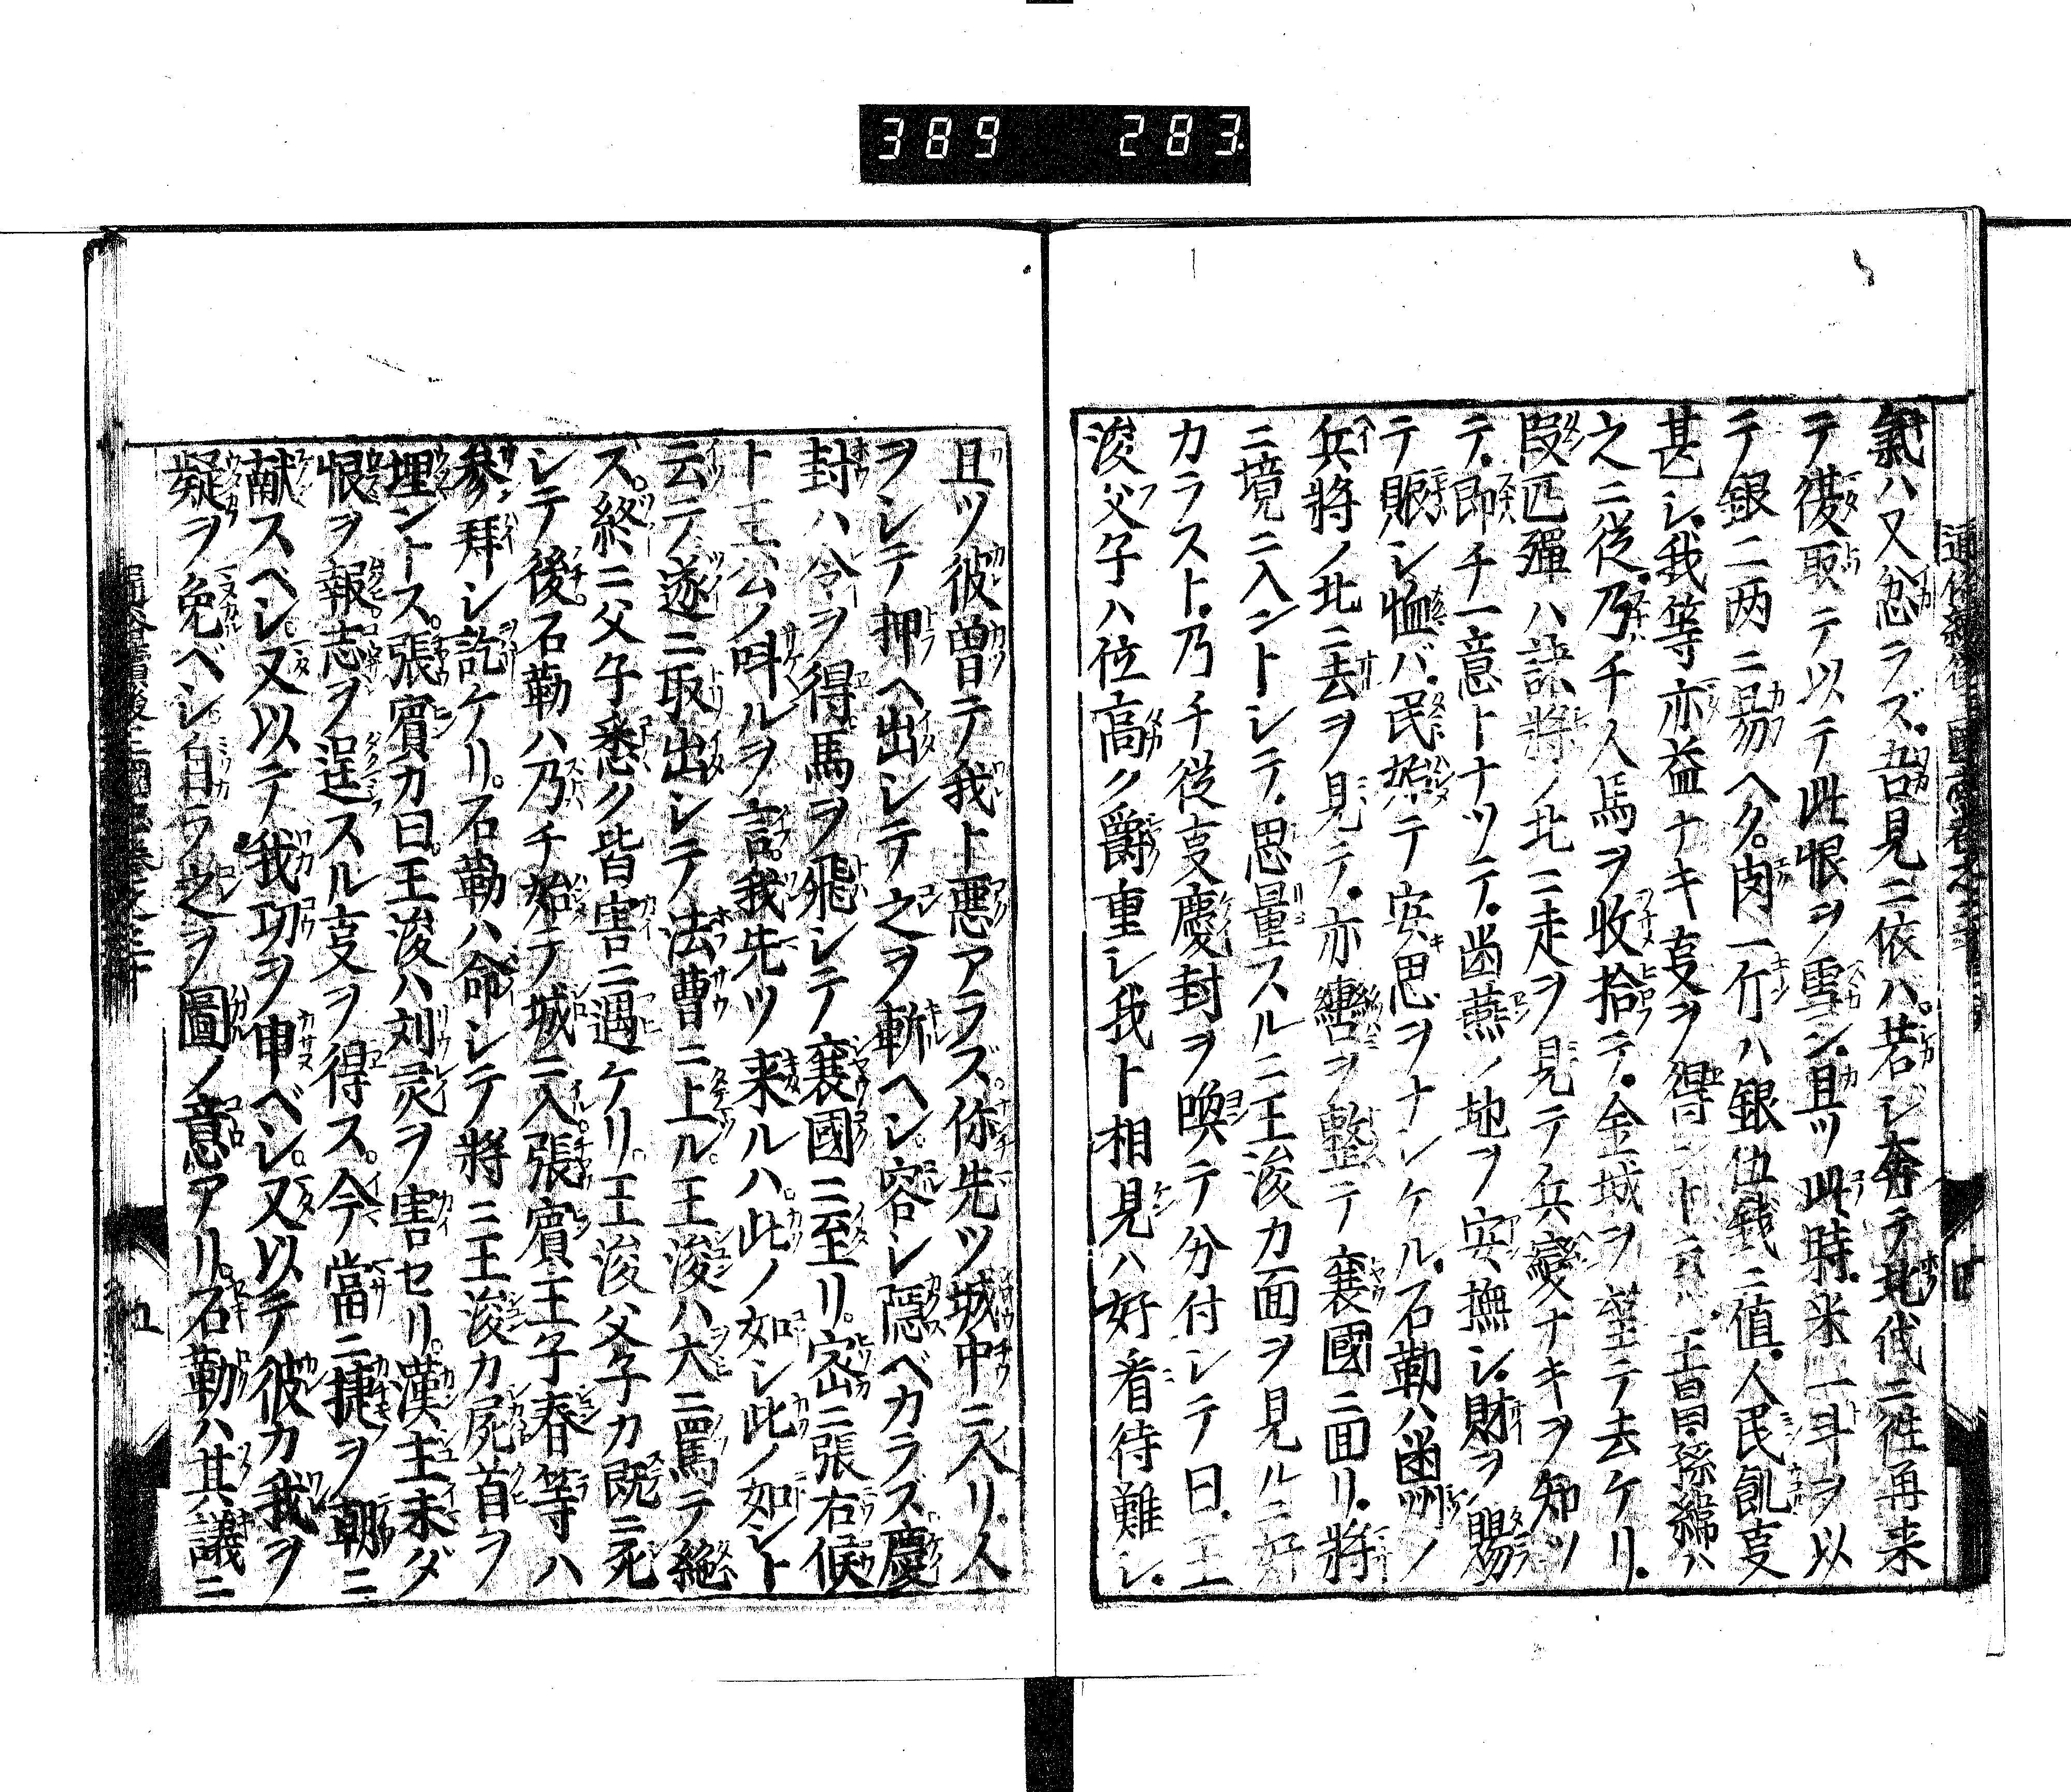 389 283.
氣ハ又忽ラズ吾見ニ依ハ若シ奔テ北代ニ徃再来
テ復取テ以テ此恨ヲ雪ン且ツ此時米一斗ヲ以
テ銀二两ニ易ヘク肉一斤ハ銀伍錢ニ值人民飢㕝
甚シ我等亦益ナキ㕝ヲ得ント云ハ王昌孫緯ハ
之ニ従乃チ人馬ヲ收拾テ金城ヲ望テ去ケリ
段匹殫ハ諸將ノ北ニ走ヲ見テ兵變ナキヲ知ツ
テ即チ一意トナツテ幽燕ノ地ヲ安撫シ財ヲ賜
テ賑シ恤バ民始テ安思ヲナシケル石勒ハ幽州ノ
兵將ノ北ニ去ヲ見テ亦轡ヲ整テ襄國ニ面リ將
ニ境ニ入ントシテ思量スルニ王浚カ面ヲ見ルニ好
カラスト乃チ従㕝慶封ヲ喚テ分付シテ曰王
浚父子ハ位高ク爵重シ我ト相見ハ好看待難シ
且ツ彼曽テ我ト悪アラズ你先ツ城中ニ入リ人
ヲシテ押ヘ出シテ之ヲ斬ヘシ容シ隠ベカラズ慶
封ハ令ヲ得馬ヲ飛シテ襄國ニ至リ密ニ張右候
ト王公ノ呌ルヲ言我先ツ来ルハ此ノ如シ此ノ如シト
云テ遂ニ取出シテ法曹ニ上ル王浚ハ大ニ罵テ絶
ズ終ニ父子悉ク皆害ニ遇ケリ王浚父子カ既ニ死
シテ後石勒ハ乃チ始テ城ニ入張賓王子春等ハ
參拜シ訖ケリ石勒ハ命シテ將ニ王浚カ屍首ヲ
埋ントス張賓カ曰王浚ハ刘灵ヲ害セリ漢主未ダ
恨ヲ報志ヲ逞スル㕝ヲ得ス今當ニ捷ヲ朝ニ
献スベシ又以テ我功ヲ申ベシ又以テ彼カ我ヲ
疑ヲ免ベシ自ラ之ヲ圖ノ意アリ石勒ハ其議ニ